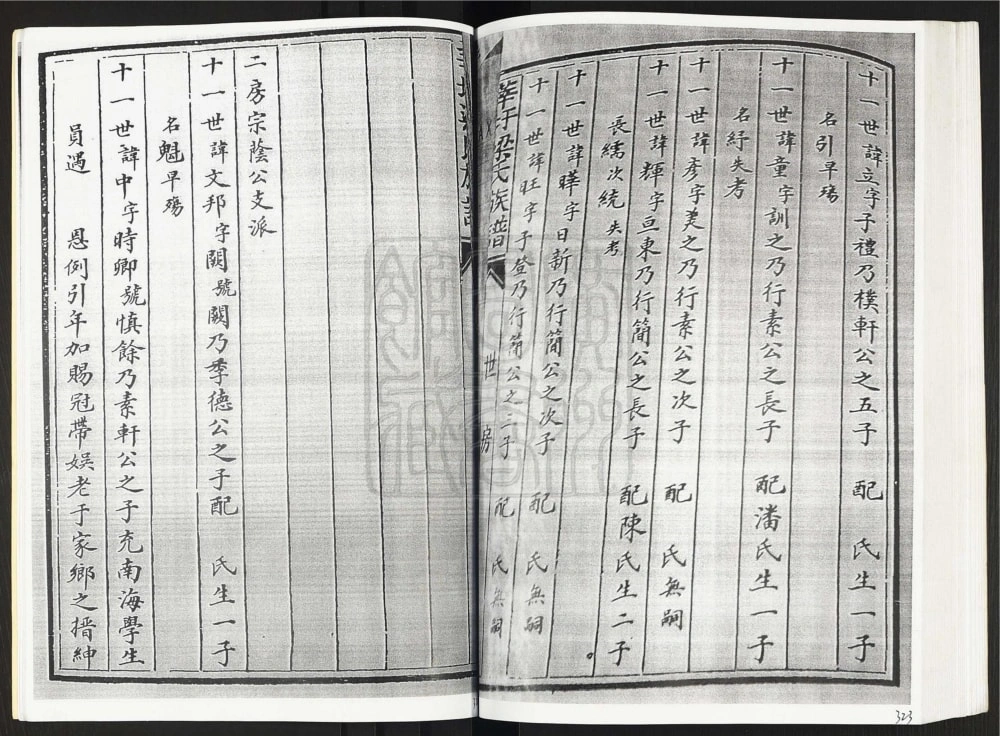 十一世諱立字子禮乃樸軒公之五子 配 氏生一子
名引早殤
十一世諱童字訓之乃行素公之長子 配潘氏生一子
名紓失考
十一世諱彥字美之乃行素公之次子 配 氏無嗣
十一世諱輝字亘東乃行簡公之長子 配陳氏生二子
長繻次統失考
十一世諱曄字日新乃行簡公之次子 配 氏無嗣
十一世諱旺字子登乃行簡公之三子 配 氏無嗣
梁氏族譜 世 房
二房宗蔭公支派
十一世諱文邦字闕號闕乃季德公之子配 氏生一子
名魁早殤
十一世諱中字時卿號慎餘乃素軒公之子充南海學生
員遇 恩例引年加賜冠帶娛老于家鄉之搢紳
323